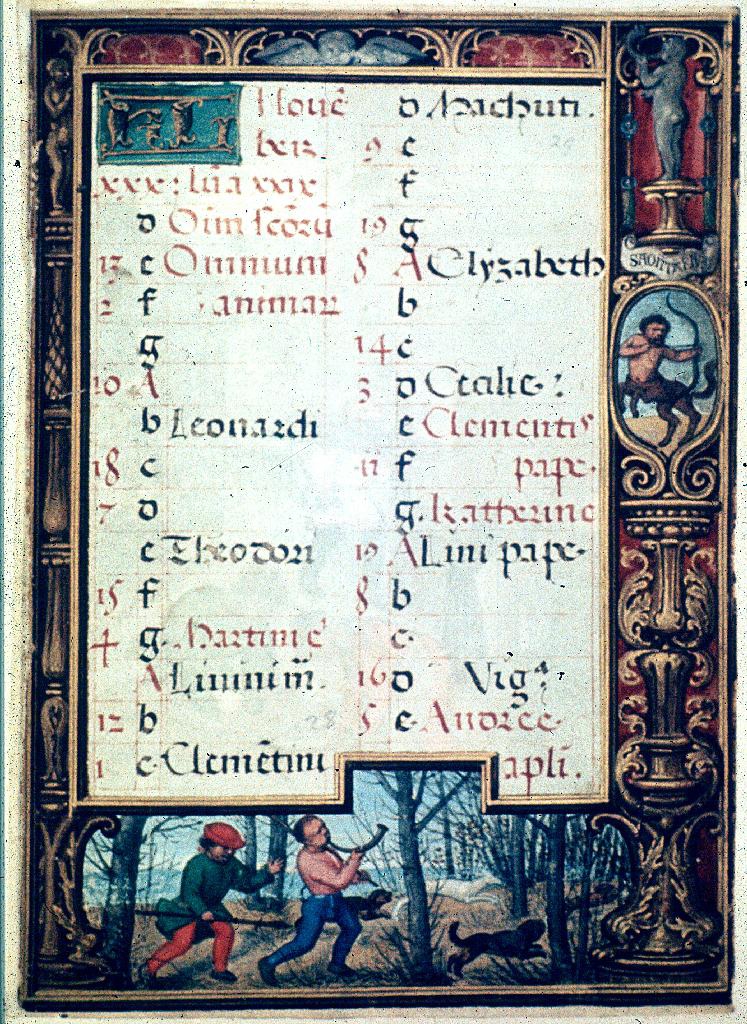 KL Nouē
ber.
xxx: lūa xxix
d Om̄ scōrū
13 e Omnium
2 f animar
g
10 A
b Leonardi
18 c
7 d
e Theodori
15 f
4 g. Martini e
A
12 b
1 c Clemētini
d Machuti.
9 e
f
19 g
8 A Elyzabeth
b
14 c
3 d Cecilie:
e Clementis
11 f pape.
g. Katherine
19 A Lini pape.
8 b
c.
16 d Vigᵃ:
5 e. Andree.
apli.